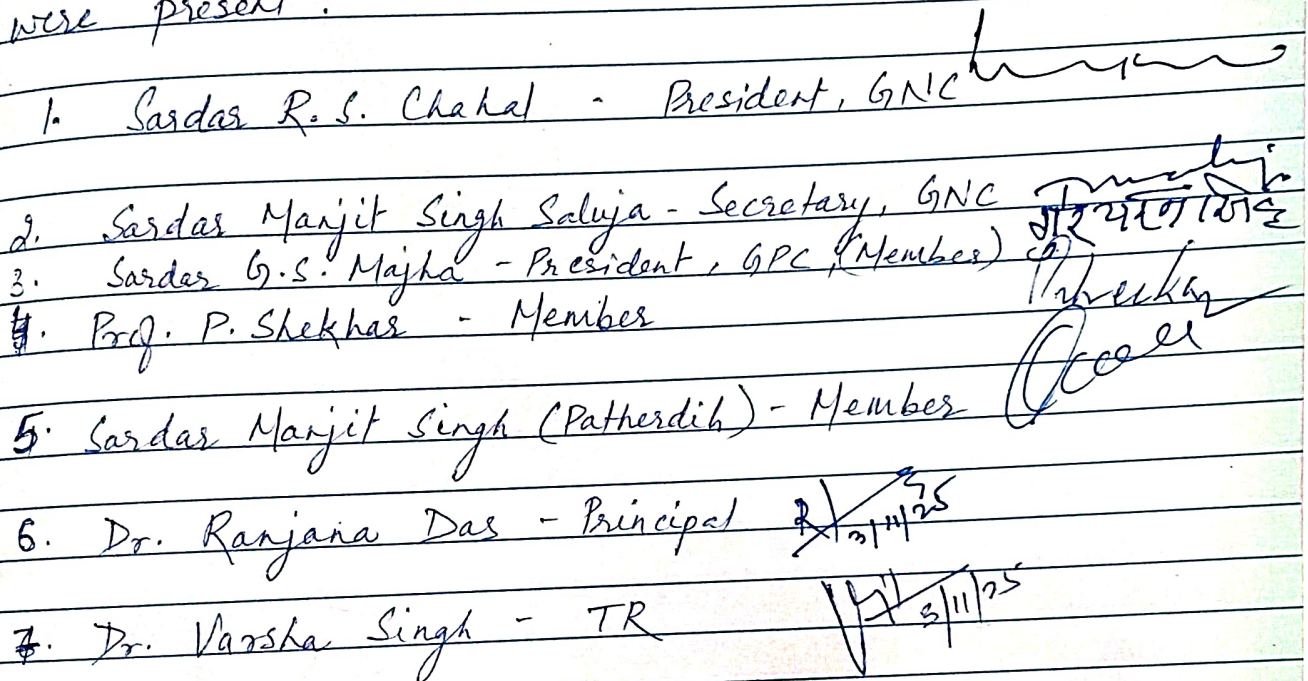 were present.
1. Sardar R. S. Chahal - President, GNC
2. Sardar Manjit Singh Saluja - Secretary, GNC
3. Sardar G.S. Majha - President, GPC (Member)
4. Prof. P. Shekhar - Member
5. Sardar Manjit Singh (Patherdih) - Member
6. Dr. Ranjana Das - Principal 3/11/25
7. Dr. Varsha Singh - TR 3/11/25